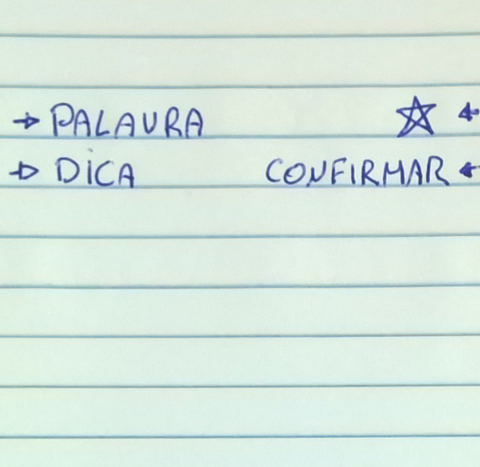 → PALAVRA ☆ ←
→ DICA CONFIRMAR ←